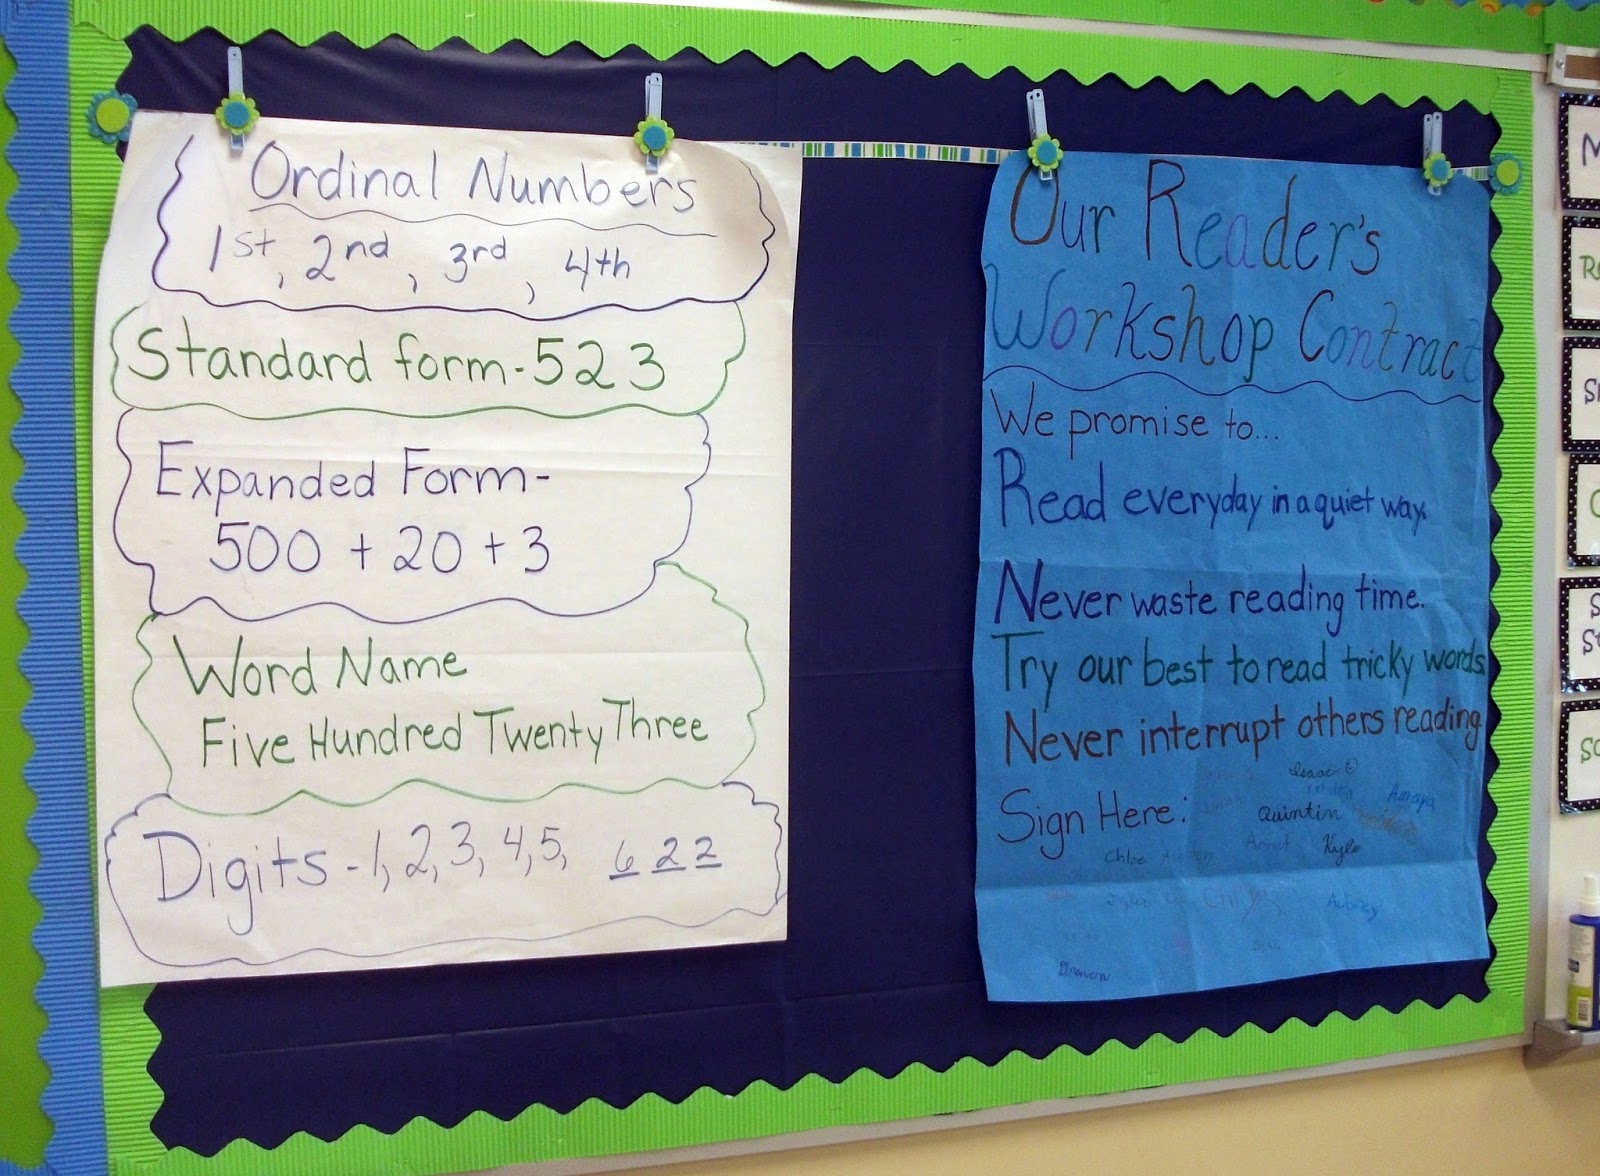 Ordinal Numbers
1st, 2nd, 3rd, 4th
Standard form - 523
Expanded Form -
500 + 20 + 3
Word Name
Five Hundred Twenty Three
Digits - 1, 2, 3, 4, 5, 6 2 2
Our Reader's
Workshop Contract
We promise to...
Read everyday in a quiet way.
Never waste reading time.
Try our best to read tricky words
Never interrupt others reading
Sign Here:
Isaac
Amaya
Quintin
Kyle
Chloe
Aubrey